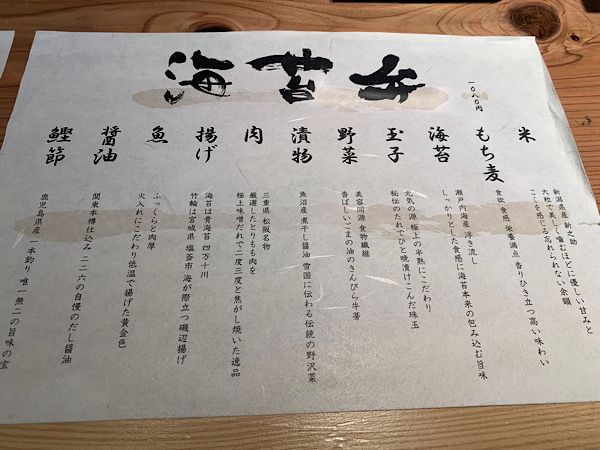 海苔弁
一〇八〇円
米
新潟県産 新之助
大粒で美しく噛むほどに優しい甘みと
こくを感じる忘れられない余韻
もち麦
食欲食感 栄養満点 香りひき立つ高い味わい
海苔
瀬戸内海産 浮き流し
しっかりとした食感に海苔本来の包み込む旨味
玉子
元気の源 極上の半熟にこだわり
秘伝のたれでひと晩漬けこんだ珠玉
野菜
美容同源 食物繊維
香ばしいごまの油のきんぴら牛蒡
漬物
魚沼産煮干し醤油 雪国に伝わる伝統の野沢菜
肉
三重県 松阪名物
厳選したとりもも肉を
極上味噌だれで二度三度と焦がし焼いた逸品
揚げ
海苔は青海苔 四万十川
竹輪は宮城県 塩釜市 海が際立つ 磯辺揚げ
魚
ふっくらと肉厚
火入れにこだわり低温で揚げた黄金色
醤油
関東本樽仕込み 二二六の自慢のだし醤油
鰹節
鹿児島県産 一本釣り 唯一無二の旨味の宝